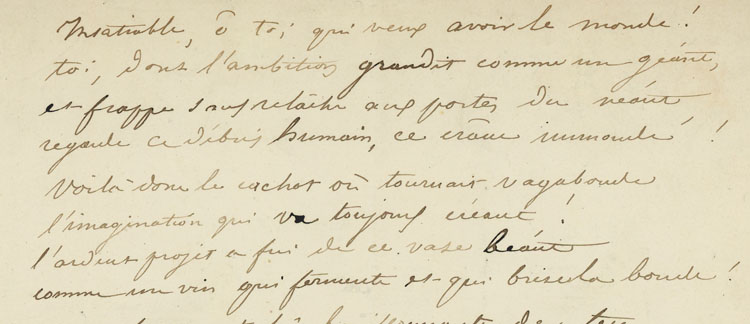 Insatiable, ô toi qui veux avoir le monde !
toi, dont l'ambition grandit comme un géant,
et frappe sans relâche aux portes du néant
regarde ce débris humain, ce crâne immonde !
Voilà donc le cachot où tournait vagabonde
l'imagination qui va toujours créant !
l'ardent projet a fui de ce vase béant
comme un vin qui fermente et qui brise la bonde !